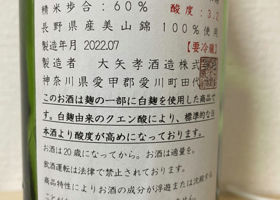 精米歩合:60% 酸度:3.2
長野県産美山錦 100%使用
製造年月 2022.07 【要冷蔵】
製造者 大矢孝酒造株式
神奈川県愛甲郡愛川町田代
このお酒は麹の一部に白麹を使用した商品で
す。白麹由来のクエン酸により、標準的な当
本酒より酸度が高めになっております。
お酒は20歳になってから。お酒は適量を。
飲酒運転は法律で禁止されております。
商品特性によりお酒の成分が浮遊または沈殿する